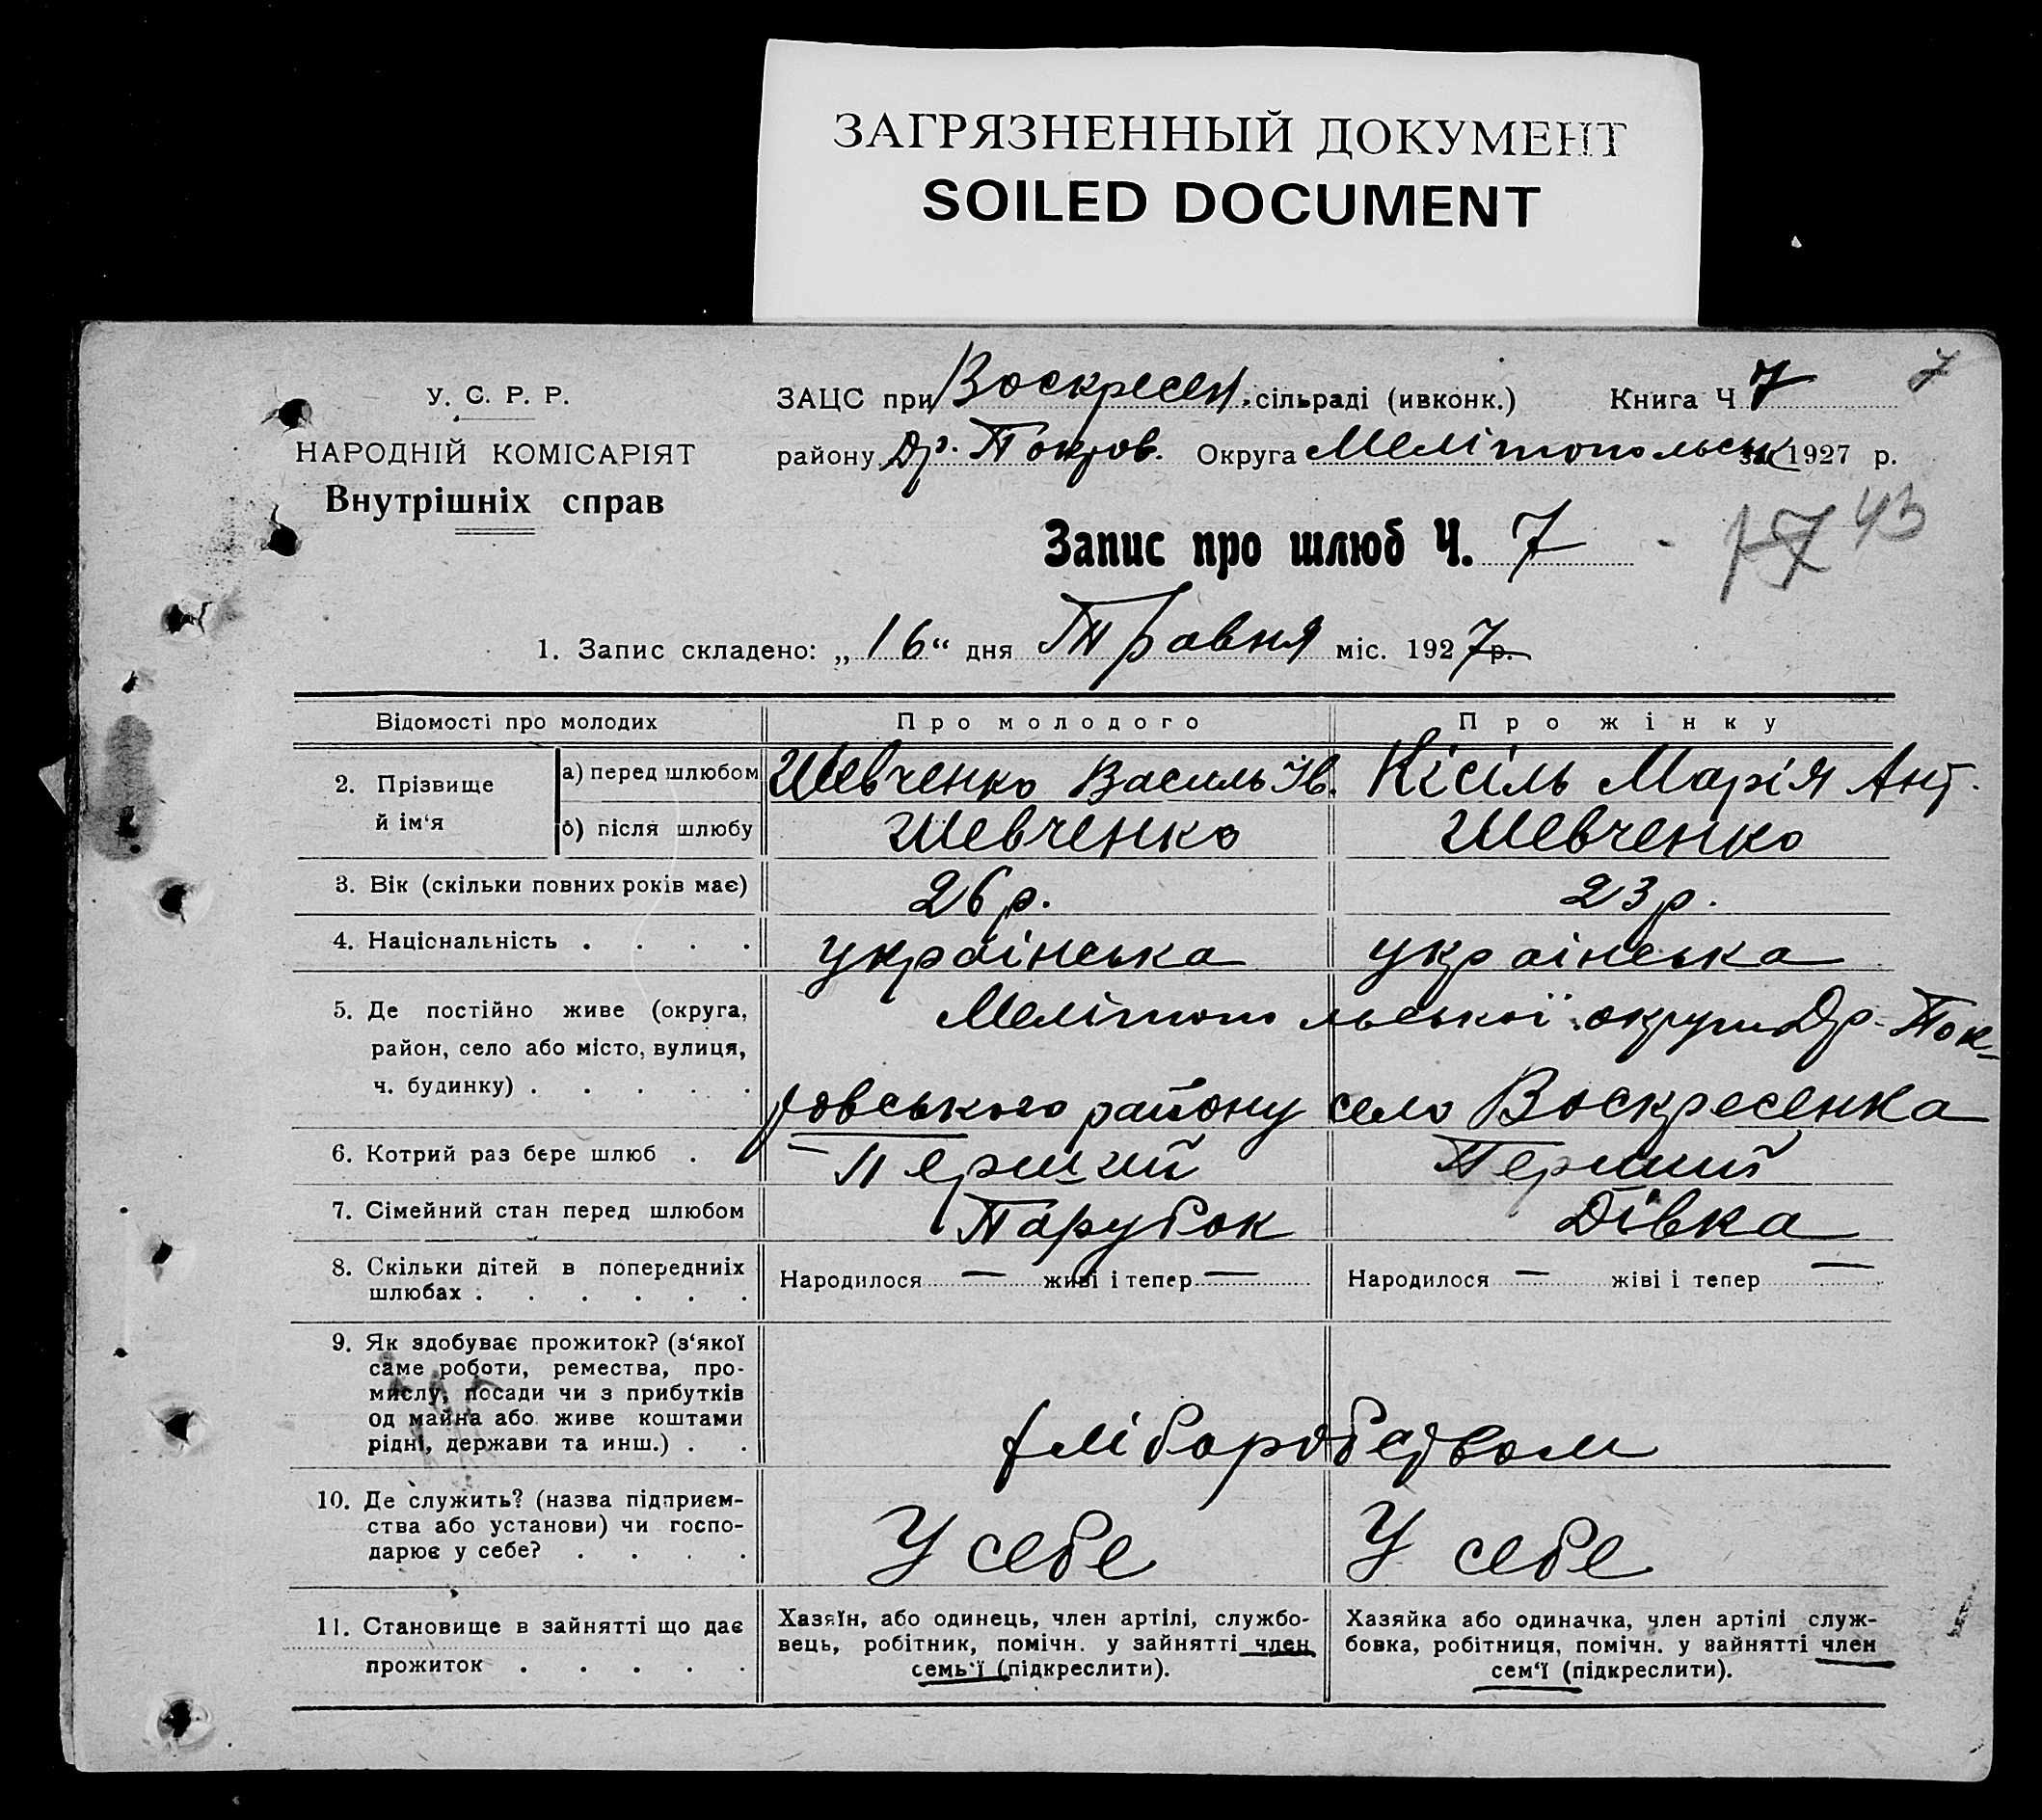 ЗАГРЯЗНЕННЫЙ ДОКУМЕНТ
SOILED DOCUMENT
У. С. Р. Р.
НАРОДНІЙ КОМІСАРІЯТ
Внутрішніх справ
ЗАЦС при Воскресен. сільраді (ивконк.) Книга Ч 7
7
району Др. Покров. Округа Мелітопольськ 1927 р.
Запис про шлюб Ч. 7
17 43
1. Запис складено: „16“ дня Травня міс. 1927 р.
Відомості про молодих Про молодого Про жінку
2. Прізвище й ім‘я
а) перед шлюбом Шевченко Василь Ів. Кісіль Марія Ант.
б) після шлюбу Шевченко Шевченко
3. Вік (скільки повних років має) 26 р. 23 р.
4. Національність . . . . українська українська
5. Де постійно живе (округа,
район, село або місто, вулиця,
ч. будинку) . . . . .
Мелітопольської округи Др-Пок-
ровського району село Воскресенка
6. Котрий раз бере шлюб . Перший Перший
7. Сімейний стан перед шлюбом Парубок Дівка
8. Скільки дітей в попередниіх
шлюбах . . . . . .
Народилося — живі і тепер — Народилося — жіві і тепер —
9. Як здобуває прожиток? (з‘якої
саме роботи, ремества, про-
мислу, посади чи з прибутків
од майна або живе коштами
рідні, держави та инш.) . .
хліборобством
10. Де служить? (назва підприєм-
ства або установи) чи госпо-
дарює у себе? . . . .
У себе У себе
11. Становище в зайнятті що дає
прожиток . . . . .
Хазяїн, або одинець, член артілі, службо-
вець, робітник, помічн. у зайнятті член
семь‘ї (підкреслити).
Хазяйка або одиначка, член артілі служ-
бовка, робітниця, помічн. у зайнятті член
сем‘ї (підкреслити).